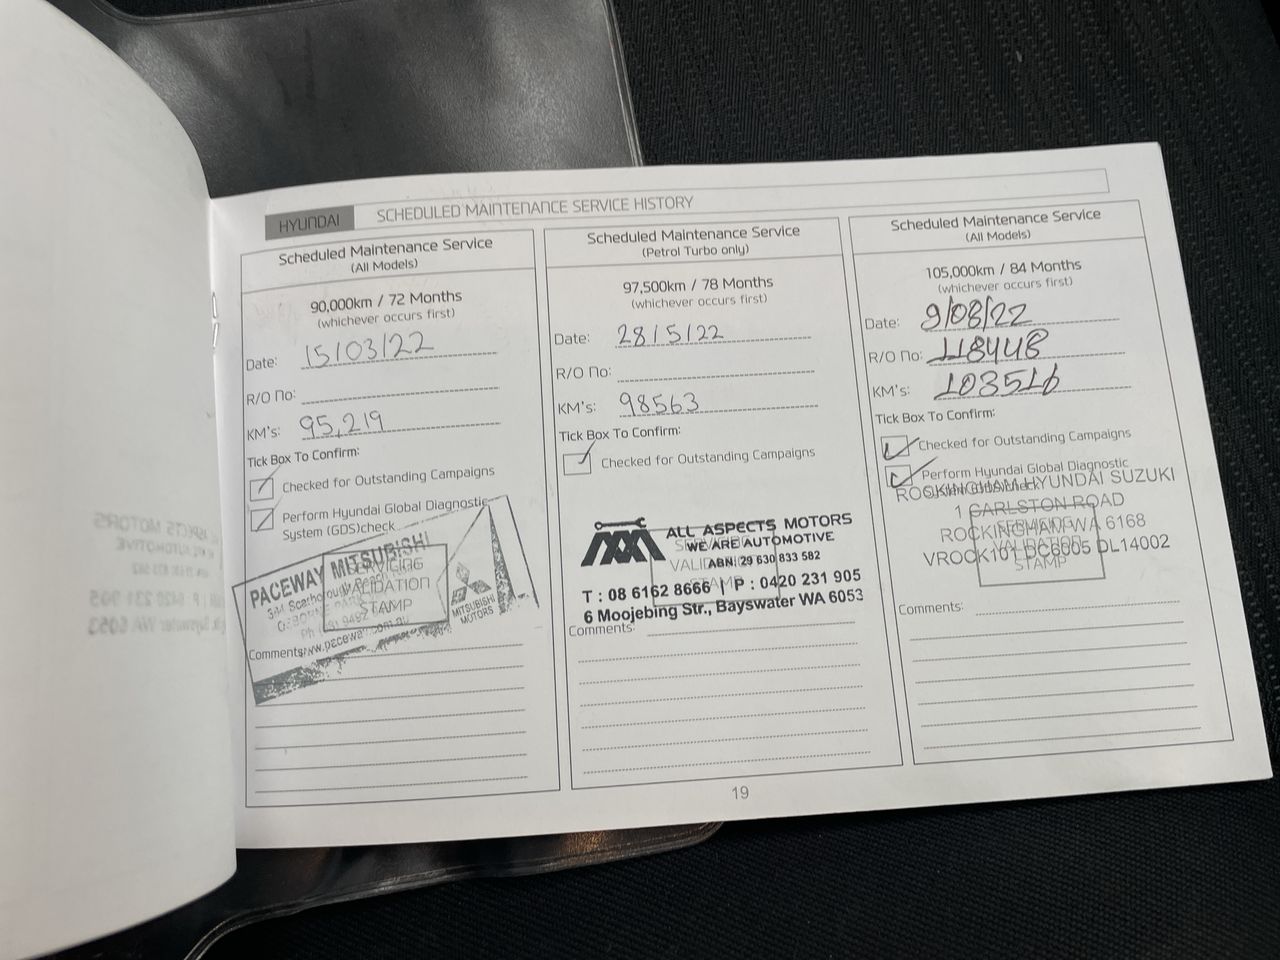 HYUNDAI
SCHEDULED MAINTENANCE SERVICE HISTORY
Scheduled Maintenance Service
(All Models)
90,000km / 72 Months
(whichever occurs first)
Date: 15/03/22
R/O No:
KM's: 95,219
Tick Box To Confirm:
Checked for Outstanding Campaigns
Perform Hyundai Global Diagnostic
System (GDS)check
PACEWAY MITSUBISHI
SERVICING
VALIDATION
STAMP
MITSUBISHI
MOTORS
Comments:
Scheduled Maintenance Service
(Petrol Turbo only)
97,500km / 78 Months
(whichever occurs first)
Date: 28/5/22
R/O No:
KM's: 98563
Tick Box To Confirm:
Checked for Outstanding Campaigns
ALL ASPECTS MOTORS
WE ARE AUTOMOTIVE
ABN: 29 630 833 582
T : 08 6162 8666 | P : 0420 231 905
6 Moojebing Str., Bayswater WA 6053
Comments:
Scheduled Maintenance Service
(All Models)
105,000km / 84 Months
(whichever occurs first)
Date: 9/08/22
R/O No: 118448
KM's: 103516
Tick Box To Confirm:
Checked for Outstanding Campaigns
Perform Hyundai Global Diagnostic
ROCKINGHAM HYUNDAI SUZUKI
1 CARLSTON ROAD
ROCKINGHAM WA 6168
VROCK101 DC6905 DL14002
STAMP
Comments:
19